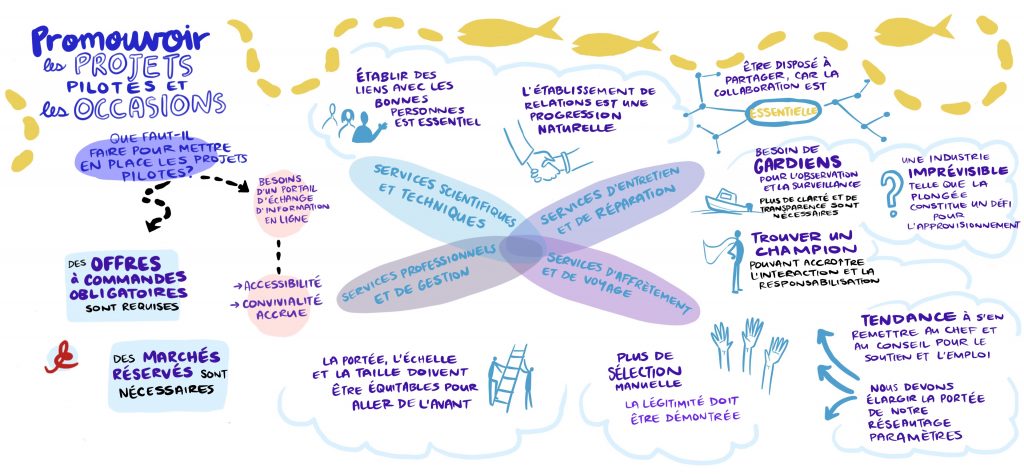 Promouvoir
les PROJETS
PILOTES ET
les OCCASIONS
QUE FAUT-IL
FAIRE POUR METTRE
EN PLACE LES PROJETS
PILOTES?
BESOINS
D'UN PORTAIL
D'ÉCHANGE
D'INFORMATION
EN LIGNE
→ ACCESSIBILITÉ
→ CONVIVIALITÉ
ACCRUE
DES OFFRES
À COMMANDES
OBLIGATOIRES
SONT REQUISES
DES MARCHÉS
RÉSERVÉS SONT
NÉCESSAIRES
ÉTABLIR DES
LIENS AVEC LES
BONNES
PERSONNES
EST ESSENTIEL
L'ÉTABLISSEMENT DE
RELATIONS EST UNE
PROGRESSION
NATURELLE
ÊTRE DISPOSÉ À
PARTAGER, CAR LA
COLLABORATION EST
ESSENTIELLE
SERVICES SCIENTIFIQUES
ET TECHNIQUES
SERVICES D'ENTRETIEN
ET DE RÉPARATION
SERVICES PROFESSIONNELS
ET DE GESTION
SERVICES D'AFFRÈTEMENT
ET DE VOYAGE
BESOIN DE
GARDIENS
POUR L'OBSERVATION
ET LA SURVEILLANCE
PLUS DE CLARTÉ ET DE
TRANSPARENCE SONT
NÉCESSAIRES
UNE INDUSTRIE
IMPRÉVISIBLE
TELLE QUE LA
PLONGÉE
CONSTITUE UN DÉFI
POUR
L'APPROVISIONNEMENT
?
TROUVER UN
CHAMPION
POUVANT ACCROÎTRE
L'INTERACTION ET LA
RESPONSABILISATION
LA PORTÉE, L'ÉCHELLE
ET LA TAILLE DOIVENT
ÊTRE ÉQUITABLES POUR
ALLER DE L'AVANT
PLUS DE
SÉLECTION
MANUELLE
LA LÉGITIMITÉ DOIT
ÊTRE DÉMONTRÉE
TENDANCE À S'EN
REMETTRE AU CHEF ET
AU CONSEIL POUR LE
SOUTIEN ET L'EMPLOI
NOUS DEVONS
ÉLARGIR LA PORTÉE
DE NOTRE
RÉSEAUTAGE
PARAMÈTRES